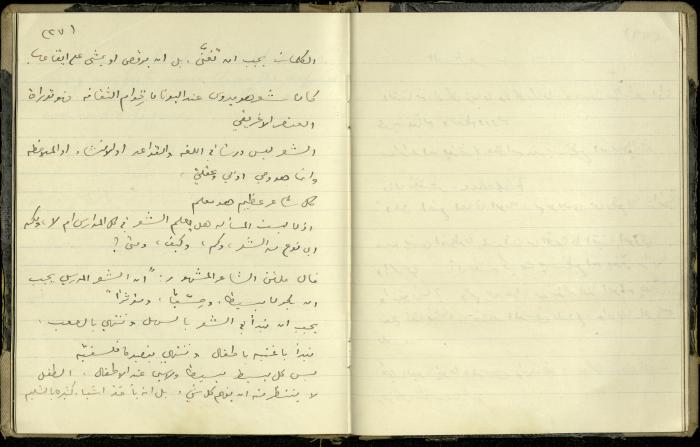 (٢٧)
الكلمات يجب ان تغنّى، بل ان يرقص او يمشى على ايقاعها
كان شعر هوميروس عند اليونان قوام الثقافة فهو توراة
العنصر الاغريقي
الشعر ليس درسا في اللغة والقواعد او الانشاء او الملاحظة
وانما هو وحي ادبي وعقلي.
كل شاعر عظيم هو معلم
اذن ليست المسألة هل يعلم الشعر في المدارس ام لا، ولكنه
اي نوع من الشعر، وكم، وكيف، ومتى؟
قال ملتن الشاعر المشهور: "ان الشعر المدرسي يجب
ان يكون بسيطا، وحسّيّا، ومؤثرا"
يجب ان نبدأ في الشعر بالسهل وننتهي بالصعب.
نبدأ باغنية باطفال وننتهي بقصيدة فلسفية
ليس كل بسيط بسيطا عند الاطفال. الطفل
لا ينتظر منه ان يفهم كل شيء، بل انه يأخذ اشياء كثيرة بالتسليم